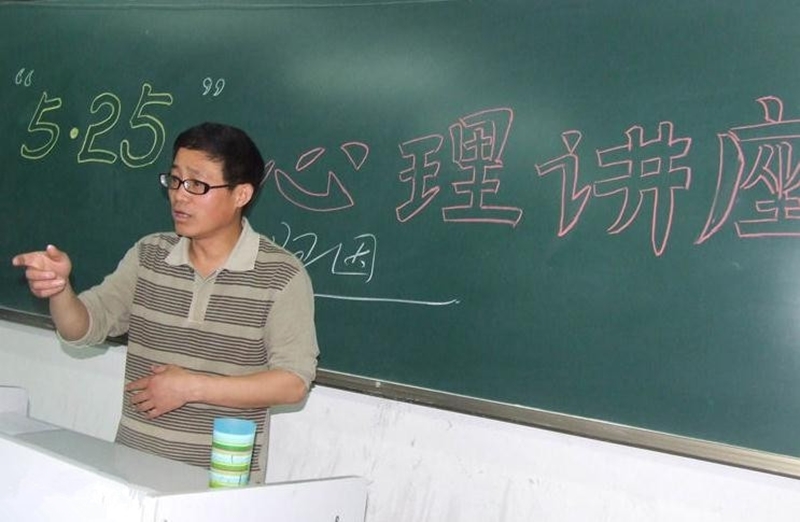 “5·25”
心理讲座